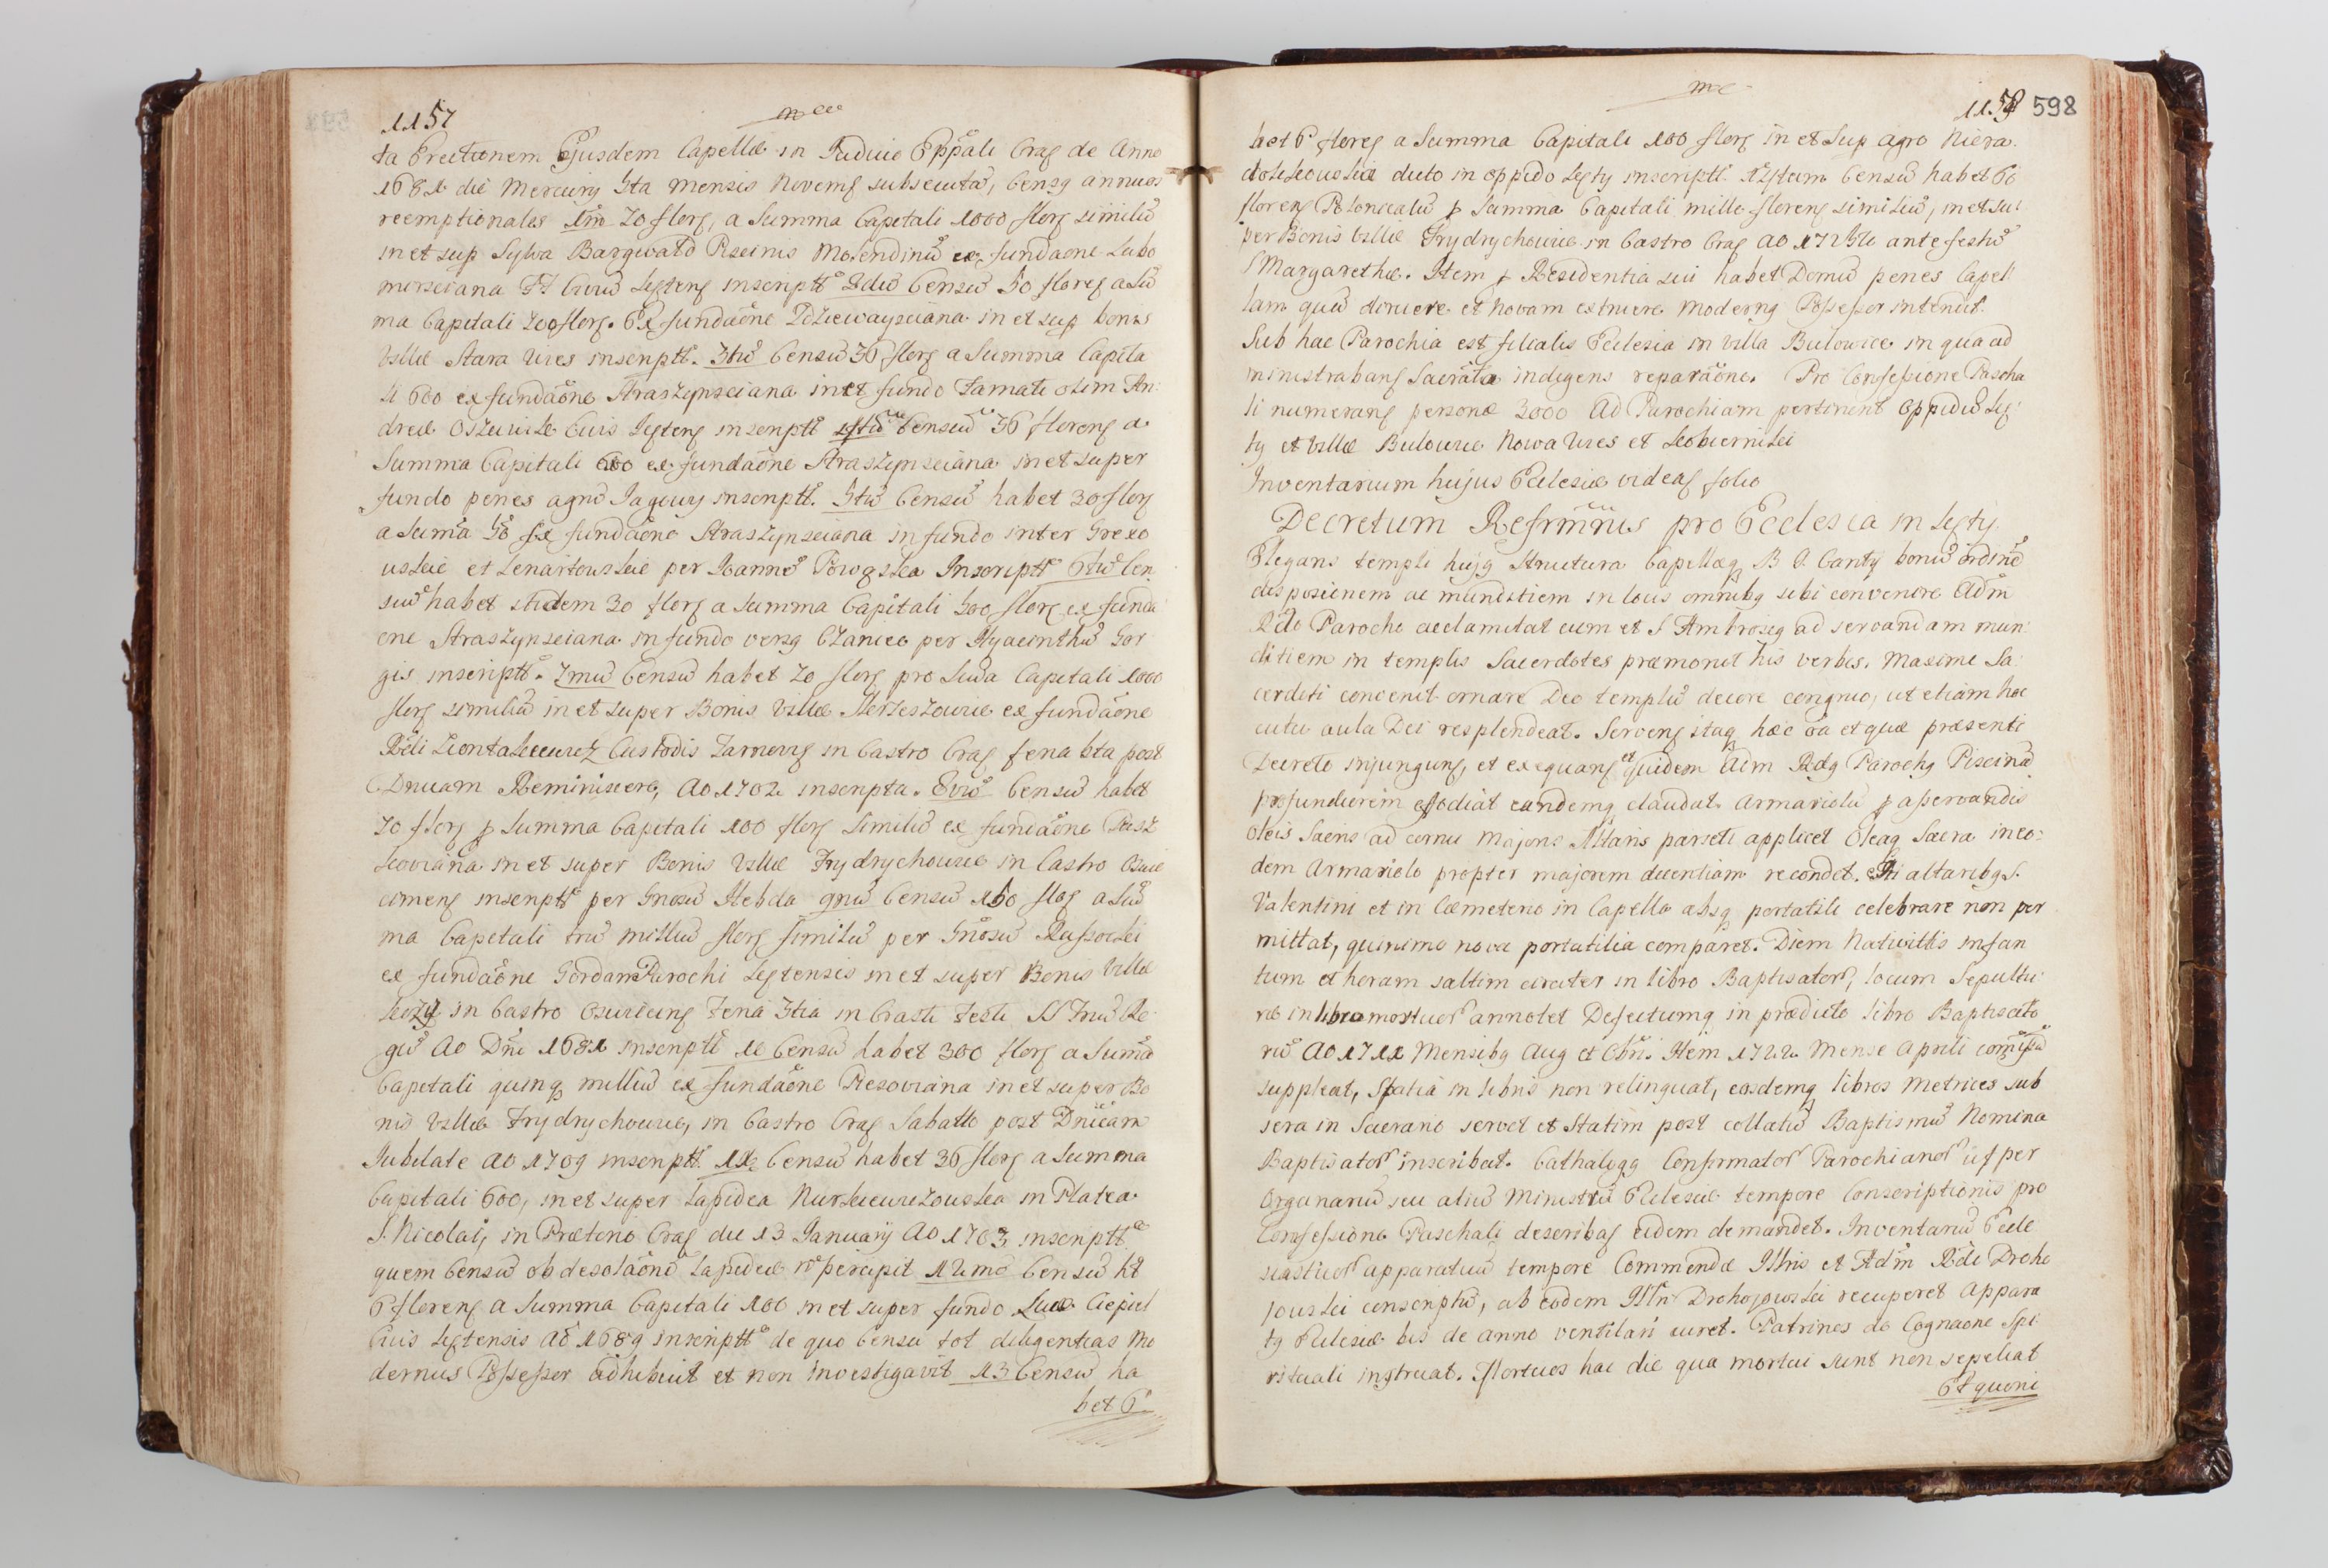 1157
ta Erectionem Ejusdem Capellæ in Judicio Eppali Crac de Anno
1681 die Mercurij 5ta mensis Novembr subsecuta, Censq annuos
reemptionales 1mũ 70 flors, a Summa Capitali 1000 flors similiũ
in et sup Sylva Bargwałd Piscinis Molendinũ ex fundaone
FF Civiũ Kestens inscriptt 2dũ Censũ 50 flores a Sũ
ma Capitali flors. Ex fundaone in et sup bonis
Villæ Stara Wies inscriptt. 3tiũ Censũ 36 flors a Summa Capita
li 600 ex fundaone Straszynsciana in et fundo Tarnati olim An:
dreæ Civis Kestens inscriptt 4tũ Censũ 36 florens a
Summa Capitali 600 ex fundaone Straszynsciana in et super
fundo penes agrũ Jagowy inscriptt. 5tũ Censũ habet 30 flors
a Suma Ex fundaone Straszynsciana in fundo inter Grexo
uskie et Lenartouskie per Joannẽ Inscriptt 6tũ Cen
sũ habet itidem 30 flors a Summa Capitali 500 flors ex funda
one Straszynsciana in fundo versq Czaniec per Hyacinthũ Gar
gis inscriptt. 7mũ Censũ habet 70 flors pro Suma Capitali 1000
flors similiũ in et super Bonis Villæ ex fundaone
Rdi Custodis Tarnovis in Castro Crac feria 6ta post
Dnicam Reminiscere, Ao 1702 inscripta. 8vũ Censũ habet
70 flors p Summa Capitali 100 flors Similiũ ex fundaone
in et super Bonis Villæ Frydrychowice in Castro Oswie
cimens inscriptt per Gnosũ Hebda 9nũ Censũ 150 flos a Sũ
ma Capitali triũ milliũ flors similiũ per Gnosũ Russocki
ex fundaone Gordani Parochi Kestensis in et super Bonis Villæ
Kozy in Castro Oswiecims Feria 3tia in Crasti Festi SS Triũ Re
gũ Ao Dni 1681 inscriptt 10 Censũ habet 300 flors a Suma
Capitali quinq milliũ ex fundaone in et super Bo
nis Villæ Frydrychowice, in Castro Crac Sabatto post Dnicam
Jubilate Ao 1709 inscriptt. 11 Censũ habet 36 flors a Summa
Capitali 600, in et super Lapidea in Platea
S. Nicolai, in Prætorio Crac die 13 Januarij Ao 1703 inscriptt
quem Censũ ob desolaonẽ Lapideæ nõ percipit 12mũ Censũ ht
6 florens a Summa Capitali 100 in et super fundo Lucæ Ciepiel
Civis Kestensis Ao 1689 inscriptt de quo Censu tot diligentias Mo
dernus Possessor adhibuit et non investigavit 13 Censũ ha
bet 6.
1158 598
bet 6 flores a Summa Capitali 100 flors in et Sup agro Niera
dotskouskie dicto in oppido Kęty inscriptt. 14tum Censũ habet 60
florens Polonicaliũ p Summa Capitali mille florens similiũ, in et su
per Bonis Villæ Frydrychowice in Castro Crac Ao 17 ante festũ
S Margarethæ. Item p Residentia sui habet Domũ penes Capel
lam quã diruere et novam extruere Modernq Possessor intendit.
Sub hac Parochia est filialis Ecclesia in villa Bulowice in qua ad
ministrabans Sacrata indigens reparaone. Pro Confessione Pascha
li numerans personæ 2000 Ad Parochiam pertinent Oppidũ Kę
ty et Villæ Bulowice Nowa Wies et Kobiernicki
Inventarium hujus Ecclesiæ videas folio
Decretum Refrmnis pro Ecclesia in Kęty
Elegans templi hujq Structura Capellæq B J. Cantij bonũ ordinẽ
disposicionem ac munditiem in locis omnibq sibi convenire Adm
Rdo Parocho acclamitat cum et S Ambrosiq ad servandam mun
ditiem in templis Sacerdotes præmonet his verbis. Maxime Sa
cerdoti convenit ornare Deo templũ decore congruo, ut etiam hoc
cultu aula Dei resplendeat. Servens itaq hæc oa et quæ præsenti
Decreto injunguns, et exequans et quidem Adm Rdq Parochq Piscinã
profundiorem effodiat eandemq claudat. Armariolũ p asservandis
Oleis Sacris ad cornu Majoris Altaris parieti applicet Oleaq Sacra in eo:
dem Armariolo propter majorem decentiam recondet. In altaribq S.
Valentini et in Cæmeterio in Capella absq portatili celebrare non per
mittat, quinimo nova portatilia comparet. Diem Nativittis infan
tum et horam saltim circiter in libro Baptisator, locum Sepultu
ræ in libro mortuor annotet Defectumq in prædicto libro Baptisato
rũ Ao 1711 Mensibq Aug et Obris Item 1722 Mense Aprili comissũ
suppleat, Spatia in libris non relinquat, eosdemq libros Metrices sub
sera in Sacrario servet et Statim post collatũ Baptismũ Nomina
Baptisator inscribat. Cathalogq Confirmator Parochianor ut per
Organariũ seu aliũ Ministrũ Ecclesiæ tempore Conscriptionis pro
Confessione Paschali describas eidem demandet. Inventariũ Eccle
siasticor apparatuũ tempore Commendæ Illris et Adm Rdi Droho
jouski conscriptũ, ab eodem Illri Drohojouski recuperet Appara
tq Ecclesiæ bis de anno ventilari curet. Patrinos de Cognaone Spi
rituali instruat. Mortuos hac die qua mortui sunt non sepeliat
Et quoni